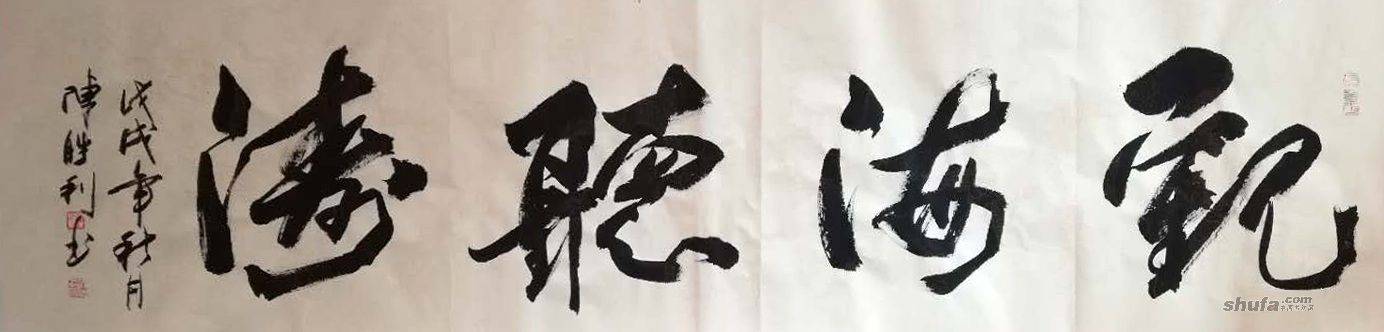 觀海聽濤
戊戌年秋月
陳勝利书
shufa.com